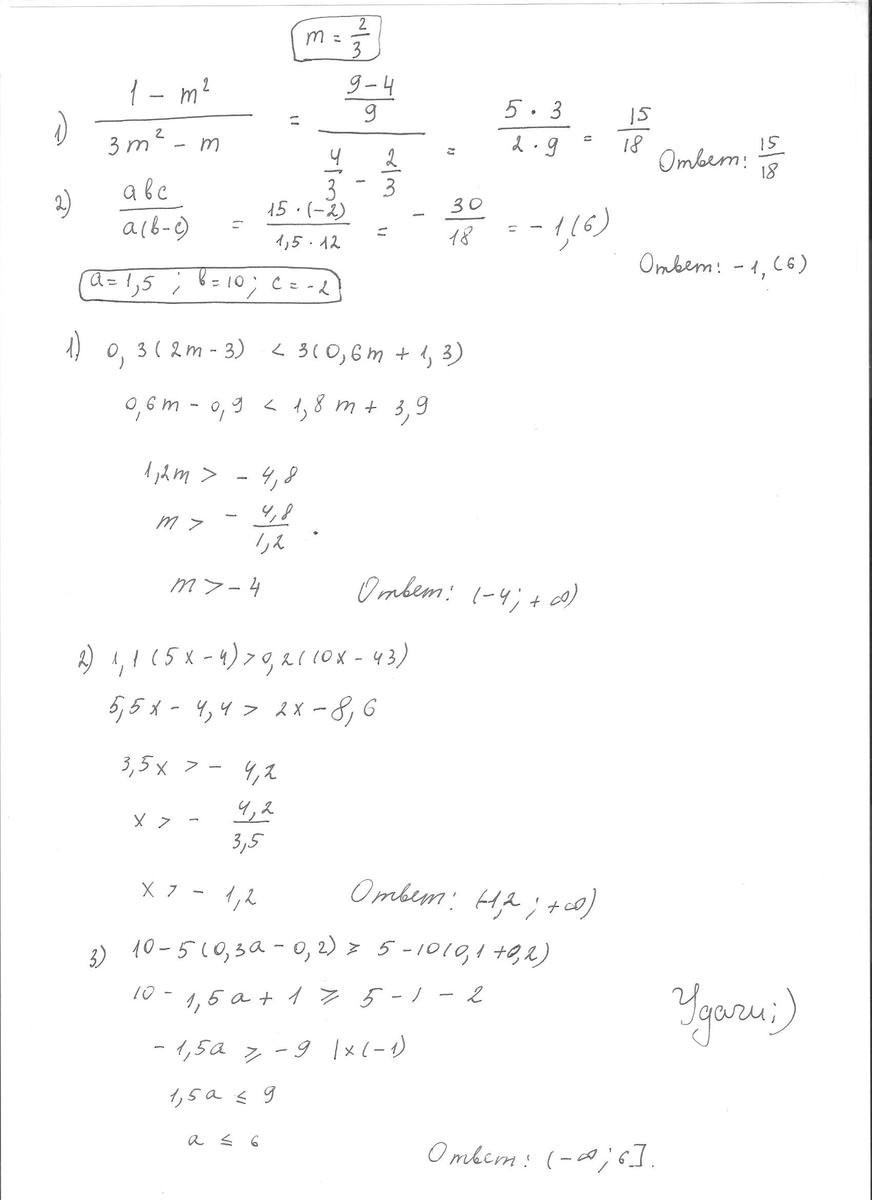 m = 2/3
1) (1 - m²)/(3m² - m) = ((9-4)/9)/(4/3 - 2/3) = (5 · 3)/(2 · 9) = 15/18 Ответ: 15/18
2) abc/a(b-c) = 15·(-2)/1,5·12 = - 30/18 = -1,(6)
Ответ: -1,(6)
a=1,5 ; b=10; c=-2
1) 0,3(2m-3) < 3(0,6m + 1,3)
0,6m - 0,9 < 1,8m + 3,9
1,2m > - 4,8
m > - 4,8/1,2 .
m > -4 Ответ: (-4; +∞)
2) 1,1(5x-4)>0,2(10x-43)
5,5x - 4,4 > 2x - 8,6
3,5x > - 4,2
x > - 4,2/3,5
x > - 1,2 Ответ: (-1,2 ; +∞)
3) 10-5(0,3a-0,2) ⩾ 5-10(0,1+0,2)
10 - 1,5a + 1 ⩾ 5 - 1 - 2
Удачи;)
- 1,5a ⩾ -9 |x(-1)
1,5a ≤ 9
a ≤ 6
Ответ: (-∞; 6].